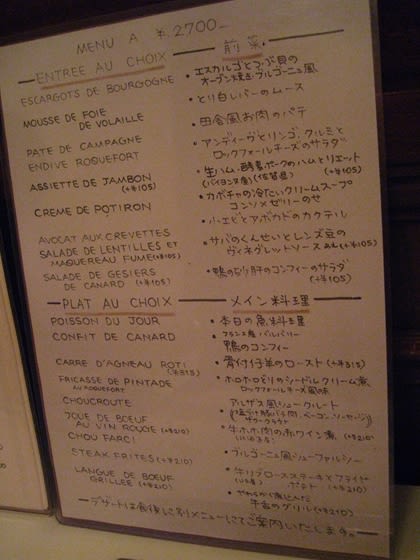 MENU A ¥2700-
ENTREE AU CHOIX 前菜
ESCARGOTS DE BOURGOGNE
・エスカルゴとつぶ貝の
オーブン焼き ブルゴーニュ風
MOUSSE DE FOIE
DE VOLAILLE
・とり白レバーのムース
PATE DE CAMPAGNE
・田舎風お肉のパテ
ENDIVE ROQUEFORT
・アンディーヴとリンゴ、クルミと
ロックフォールチーズのサラダ
ASSIETTE DE JAMBON
(+¥105)
・生ハム、酵素ポークのハムとリエット
(バイヨンヌ産)(佐賀産) (+¥105)
CREME DE POTIRON
・カボチャの冷たいクリームスープ
コンソメゼリーのせ
AVOCAT AUX CREVETTES
・小エビとアボカドのカクテル
SALADE DE LENTILLES ET
MAQUEREAU FUME(+¥105)
・サバのくんせいとレンズ豆の
ヴィネグレットソース あえ(+¥105)
SALADE DE GESIERS
DE CANARD (+¥105)
・鴨の砂肝のコンフィーのサラダ
(+¥105)
PLAT AU CHOIX メイン料理
POISSON DU JOUR
・本日の魚料理
CONFIT DE CANARD
・フランス産バルバリー
鴨のコンフィー
CARRE D'AGNEAU ROTI
(+¥315)
・骨付仔羊のロースト(+¥315)
FRICASSE DE PINTADE
AU ROQUEFORT
・ホロホロどりのシードルクリーム煮
ロックフォールチーズ風味
CHOUCROUTE
・アルザス風シュークルート
(塩づけ豚バラ肉、ベーコン、ソーセージ)
ザワークラウト
JOUE DE BOEUF
AU VIN ROUGE (+¥210)
・牛ホホ肉の赤ワイン煮 (+¥210)
CHOU FARCI
・ブルゴーニュ風シューファルシー
STEAK FRITES (+¥210)
・牛リブロースステーキとフライド
ポテト (+¥210)
LANGUE DE BOEUF
GRILLEE (+¥210)
・やわらかく煮込んだ
牛舌のグリル(+¥210)
デザートは食後に別メニューにてご案内いたします。